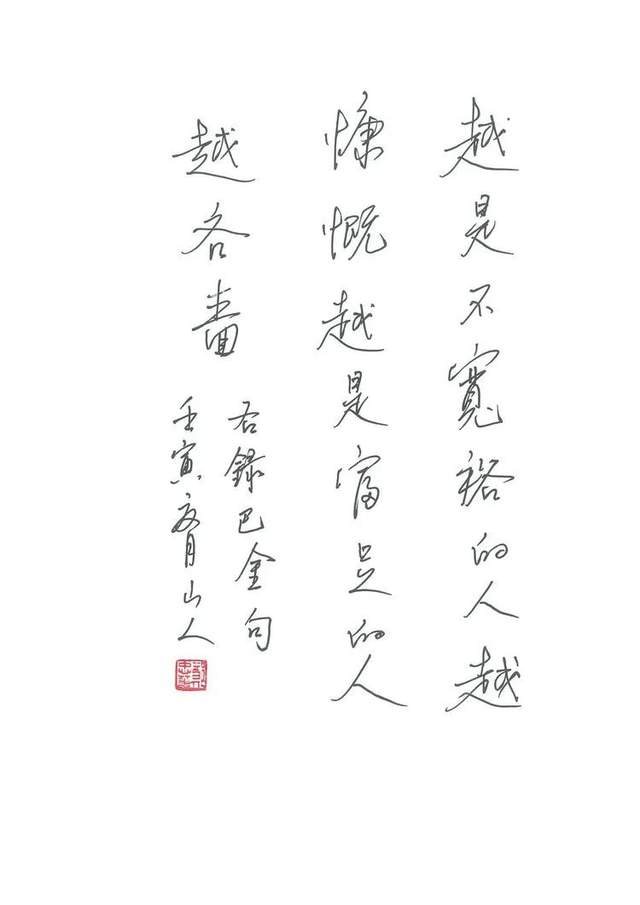 越是不寬裕的人越
慷慨越是富足的人
越吝嗇
右錄巴金句
壬寅夏月山人